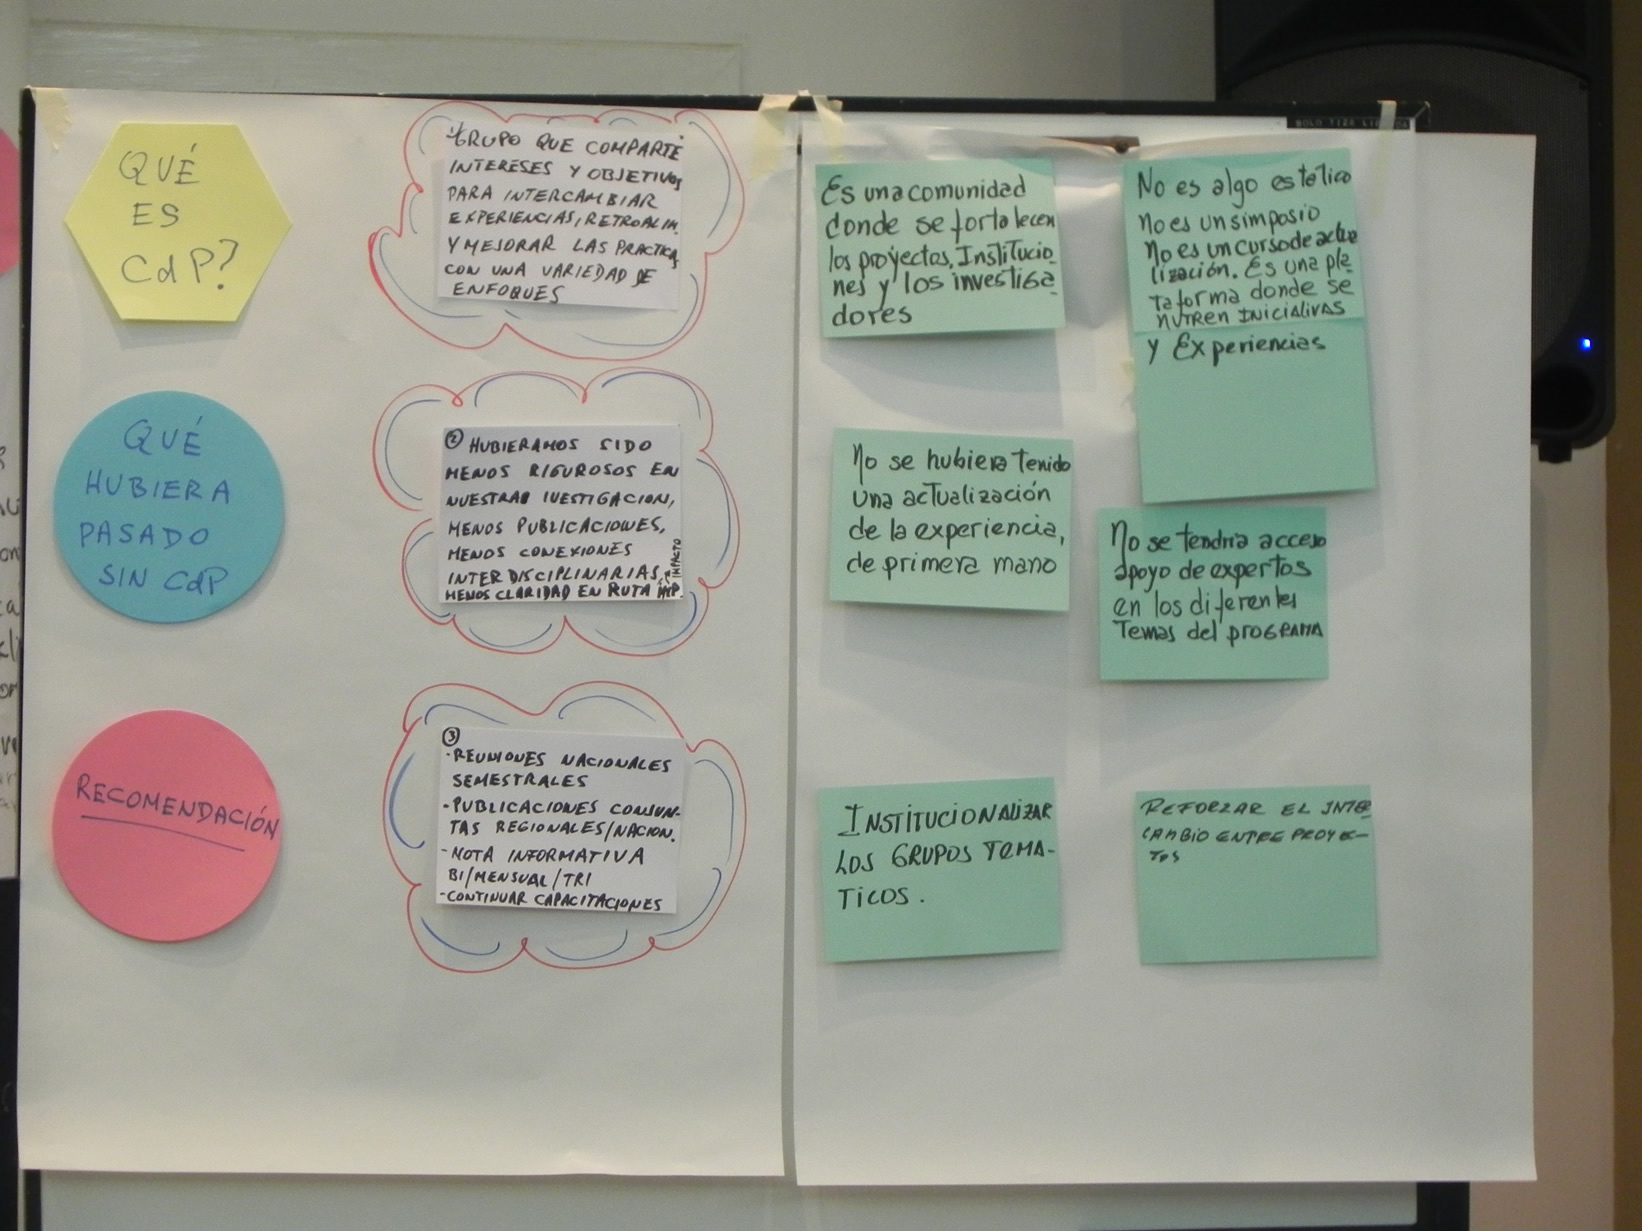 QUÉ
ES
CdP?
GRUPO QUE COMPARTE
INTERESES Y OBJETIVOS
PARA INTERCAMBIAR
EXPERIENCIAS, RETROALIM.
Y MEJORAR LAS PRACTICAS
CON UNA VARIEDAD DE
ENFOQUES
Es una comunidad
donde se fortalecen
los proyectos, Institucio-
nes y los investiga-
dores
No es algo estético
no es un simposio
No es un curso de actua
lización. Es una pla-
taforma donde se
NUTREN INICIATIVAS
y Experiencias
QUÉ
HUBIERA
PASADO
SIN CdP
② HUBIERAMOS SIDO
MENOS RIGUROSOS EN
NUESTRAS IVESTIGACION,
MENOS PUBLICACIONES,
MENOS CONEXIONES
INTERDISCIPLINARIAS,
MENOS CLARIDAD EN RUTA
IMPACTO
No se hubiera tenido
una actualización
de la experiencia,
de primera mano
No se tendria acceso
apoyo de expertos
en los diferentes
Temas del PROGRAMA
RECOMENDACIÓN
③
-REUNIONES NACIONALES
SEMESTRALES
-PUBLICACIONES CONJUN-
TAS REGIONALES/NACION.
-NOTA INFORMATIVA
BI/MENSUAL/TRI
-CONTINUAR CAPACITACIONES
INSTITUCIONALIZAR
LOS GRUPOS TEMA-
TICOS.
REFORZAR EL INTER
CAMBIO ENTRE PROYEC-
TOS